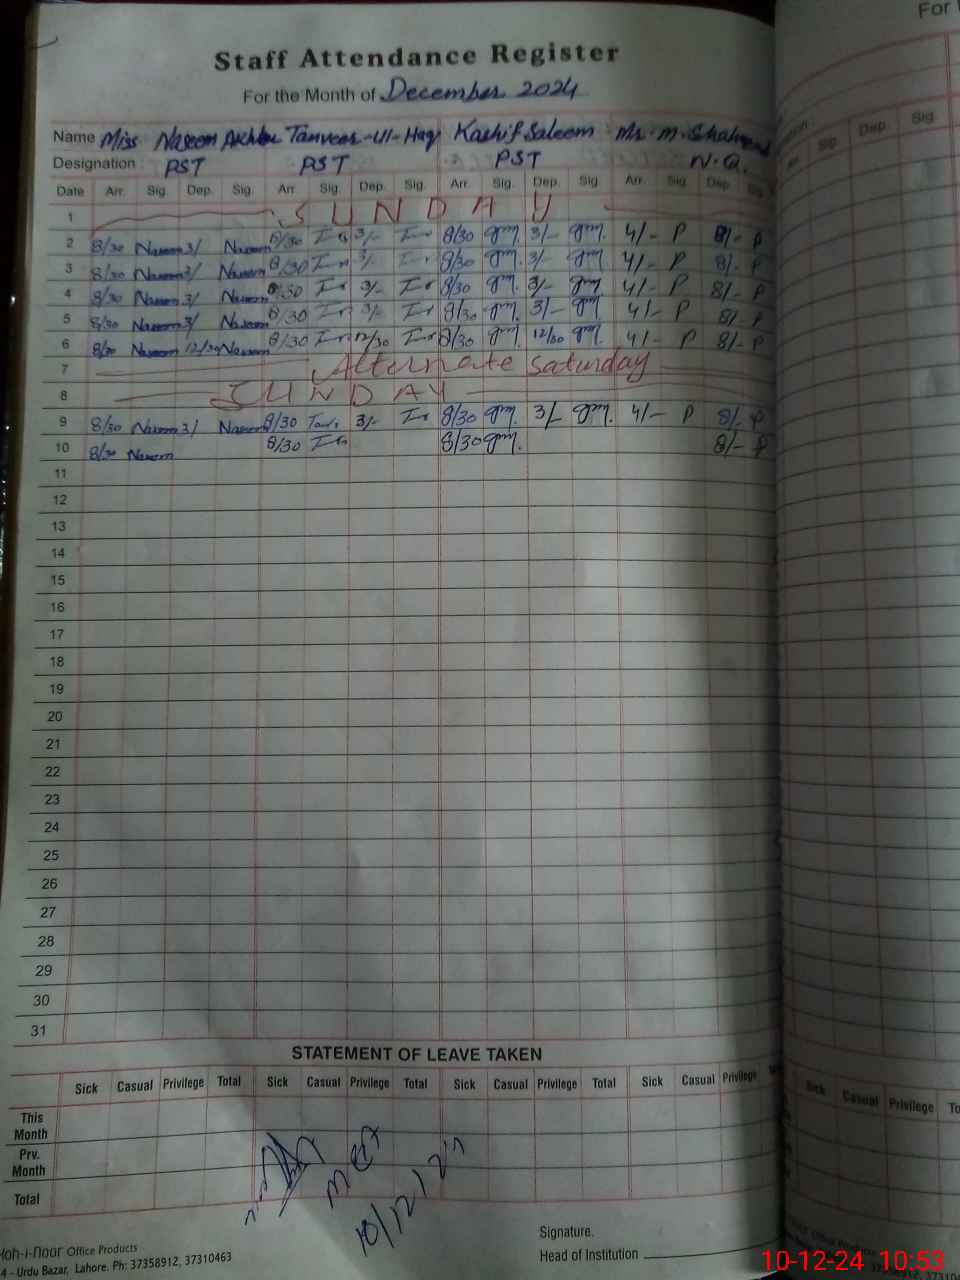 For
Staff Attendance Register
For the Month of December 2024
Name Miss Naseem Akhter Tanveer-Ul-Haq Kashif Saleem Mr. M. 
Designation PST PST PST N.Q.
Date Arr. Sig. Dep. Sig. Arr. Sig. Dep. Sig. Arr. Sig. Dep. Sig. Arr. Sig. Dep. Sig. Sig. Dep. Sig.
1 SUNDAY
2 8/30 Naseem 3/ Naseem 8/30 3/- 8/30 3/- 4/- P 8/- P
3 8/30 Naseem 3/ Naseem 8/30 3/- 8/30 3/- 4/- P 8/- P
4 8/30 Naseem 3/ Naseem 8/30 3/- 8/30 3/- 4/- P 8/- P
5 8/30 Naseem 3/ Naseem 8/30 3/- 8/30 3/- 4/- P 8/- P
6 8/30 Naseem 12/30 Naseem 8/30 12/30 8/30 12/30 4/- P 8/- P
7 Alternate Saturday
8 SUNDAY
9 8/30 Naseem 3/ Naseem 8/30 3/- 8/30 3/- 4/- P 8/- P
10 8/30 Naseem 8/30 8/30 8/- P
11
12
13
14
15
16
17
18
19
20
21
22
23
24
25
26
27
28
29
30
31
STATEMENT OF LEAVE TAKEN
Sick Casual Privilege Total Sick Casual Privilege Total Sick Casual Privilege Total Sick Casual Privilege Sick Casual Privilege To
This Month
Prv. Month
Total
10/12/24
Signature.
Head of Institution
Koh-i-Noor Office Products
4 - Urdu Bazar, Lahore. Ph: 37358912, 37310463
10-12-24 10:53